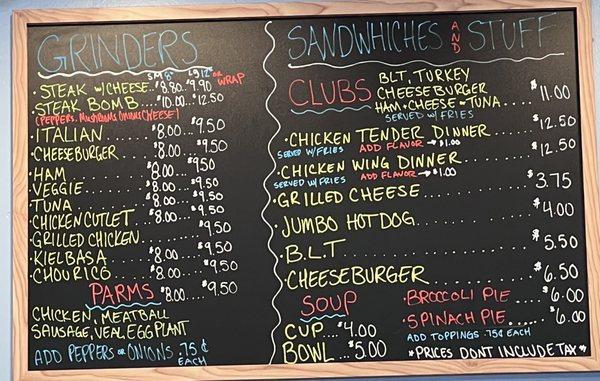 GRINDERS
SM 8" LG 12" OR WRAP
· STEAK W/CHEESE $8.80 $9.90
· STEAK BOMB .... $10.00 .... $12.50
(PEPPERS, MUSHROOMS, ONIONS, CHEESE)
· ITALIAN ........ $8.00 .... $9.50
· CHEESEBURGER ... $8.00 .... $9.50
· HAM ........ $8.00 .... $9.50
· VEGGIE ........ $8.00 .... $9.50
· TUNA ........ $8.00 .... $9.50
· CHICKEN CUTLET .. $8.00 .... $9.50
· GRILLED CHICKEN ........ $9.50
· KIELBASA ..... $8.00 .... $9.50
· CHOURICO ..... $8.00 .... $9.50
PARMS $8.00 .... $9.50
CHICKEN, MEATBALL
SAUSAGE, VEAL, EGGPLANT
ADD PEPPERS OR ONIONS .75¢ EACH
SANDWHICHES AND STUFF
CLUBS
BLT, TURKEY
CHEESEBURGER
HAM + CHEESE - TUNA .... $11.00
SERVED W/ FRIES
· CHICKEN TENDER DINNER ........ $12.50
SERVED W/ FRIES ADD FLAVOR → $1.00
· CHICKEN WING DINNER ........ $12.50
SERVED W/ FRIES ADD FLAVOR → $1.00
· GRILLED CHEESE ........ $3.75
· JUMBO HOT DOG ........ $4.00
· B.L.T ........ $5.50
· CHEESEBURGER ........ $6.50
SOUP
CUP ... $4.00
BOWL ... $5.00
· BROCCOLI PIE .... $6.00
· SPINACH PIE .... $6.00
ADD TOPPINGS .75¢ EACH
*PRICES DONT INCLUDE TAX*